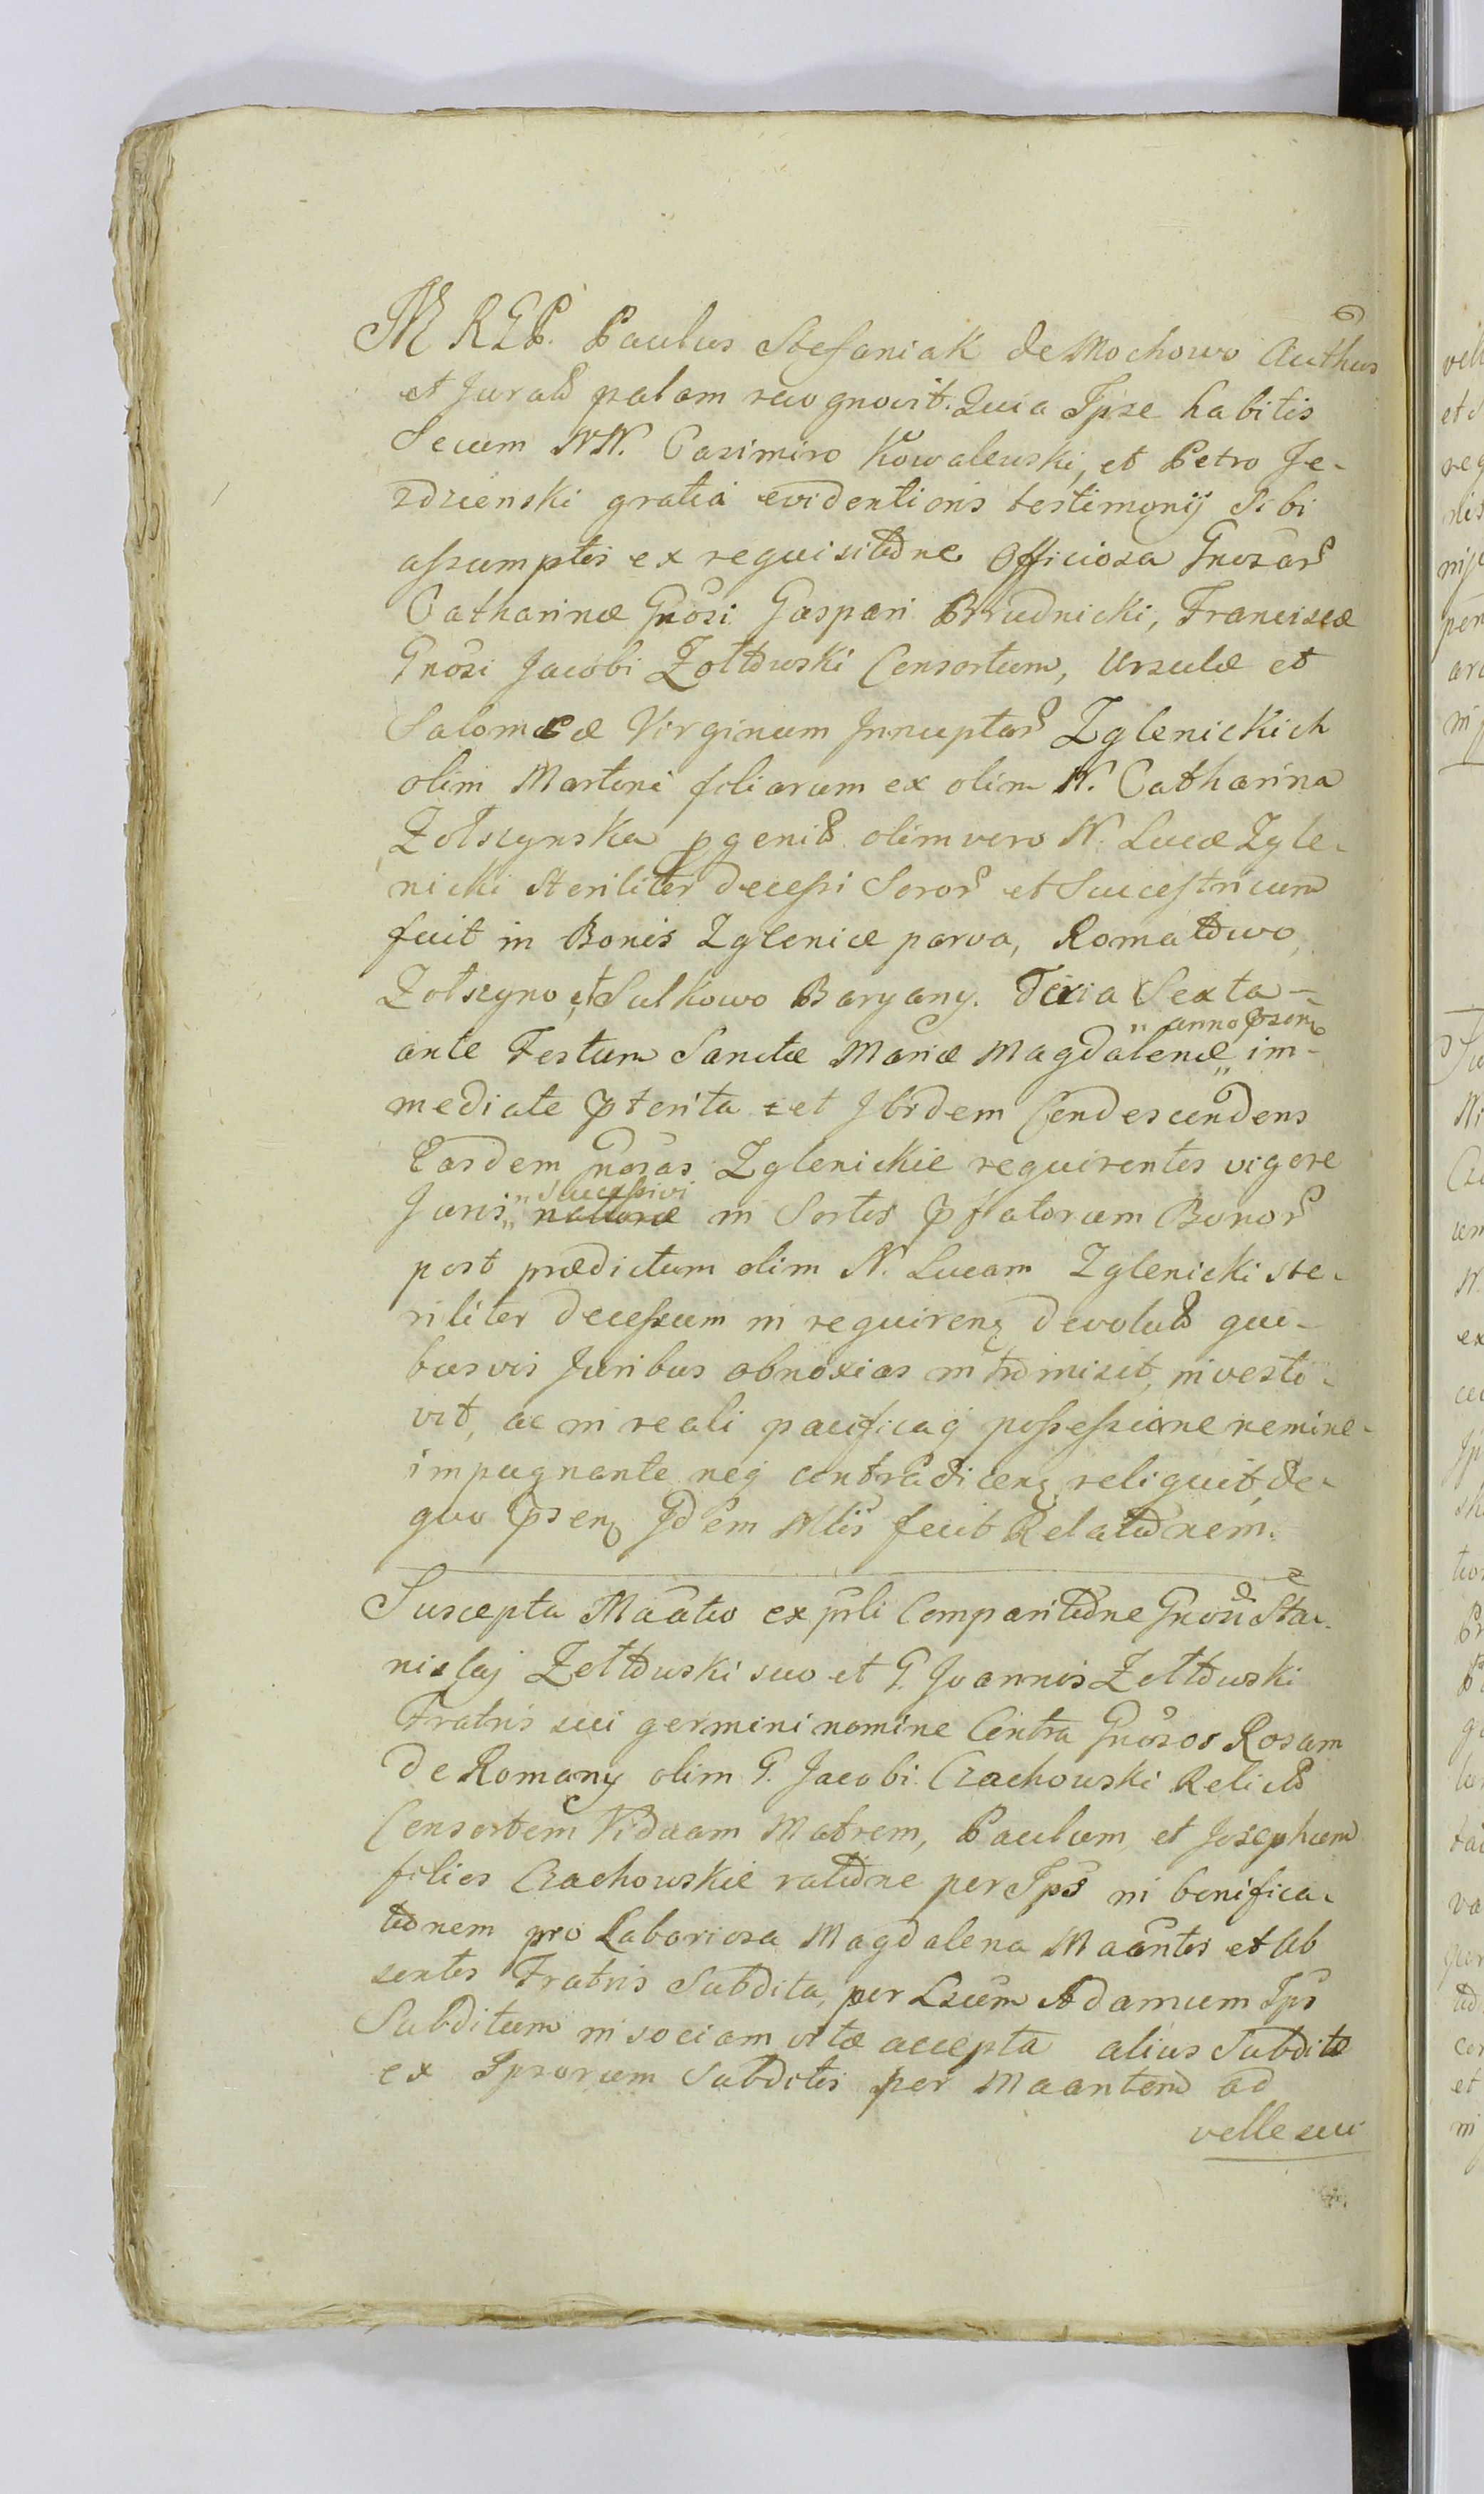 M REP. Paulus Stefaniak de Mochowo Authus
et Jurat9 palam recognovit. Quia Ipse habitis
Secum NN. Casimiro Kowalewski, et Petro Je-
zdzienski gratia evidentioris testimonij Sibi
assumptis ex requisitõne Officiosa Gnosar
Catharinæ Gnosi Gaspari Brudnicki, Franciscæ
Gnosi Jacobi Zołtowski Consortum, Ursulæ et
Salomeæ Virginum Innuptar Zglenickich
olim Martini filiarum ex olim N. Catharina
Zołszynska pgenit olim vero N. Lucæ Zgle-
nicki steriliter decessi Soror et Successricum
fuit in Bonis Zglenice parva, Romatowo,
Zołszyno et Sulkowo Baryany. Feria Sexta
ante Festum Sanctæ Mariæ Magdalenæ „anno psenti„ im-
mediate pterita et Ibidem Condescendens
Easdem Gnosas Zglenickie requirentes vigore
Juris „successivi„ naturæ in Sortes pfatorum Bonor
post prædictum olim N. Lucam Zglenicki ste-
riliter decessum in requiren devolut qui-
busvis Juribus obnoxias intromisit, investi-
vit, ac in reali pacificaq possessione nemine
impugnante neq contradicen reliquit, de
quo psen Idem Mlis fecit Relatõnem.
Suscepta Maatio ex psli Comparitõne Gnosi Sta-
nislaj Zołtowski suo et G. Joannis Zołtowski
Fratris sui germini nomine Contra Gnosos Rosam
de Romany olim G. Jacobi Czachowski Relict
Consortem Viduam Matrem, Paulum et Josephum
filios Czachowskie ratõne per Ips in bonifica-
tõnem pro Laboriosa Magdalena Maantis et ab
sentis Fratris Subdita, per Lsum Adamum Ips
Subditum in sociam vitæ accepta alius Subditæ
ex Ipsorum Subditis per Maantem ad
velle sui